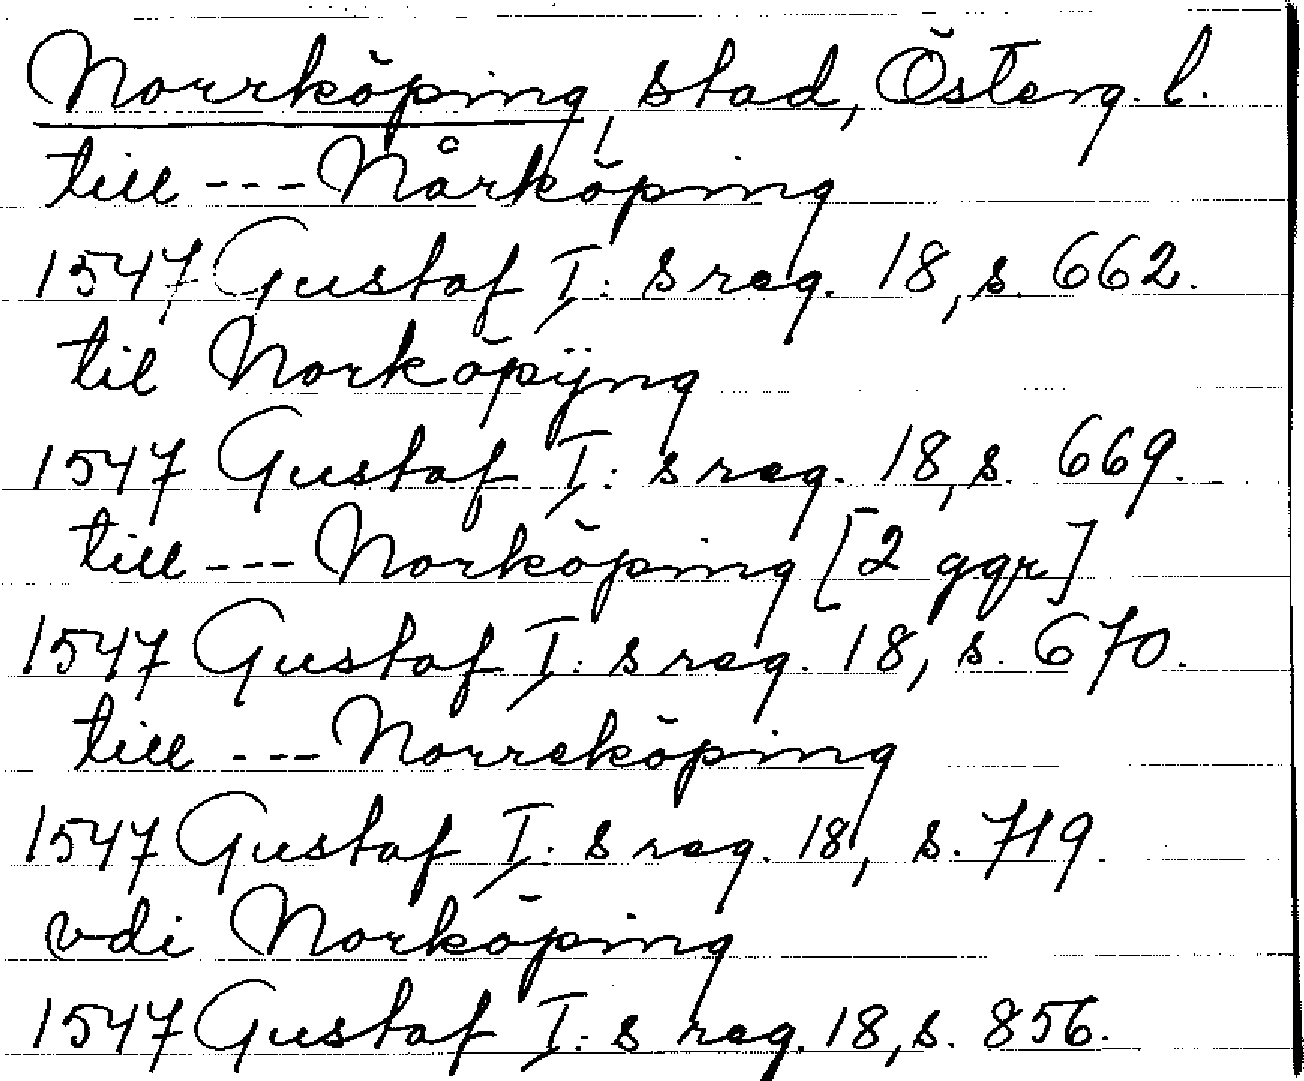 Norrköping, stad, Österg. l.
till --- Nårköping
1547 Gustaf I: s reg. 18, s. 662.
til Norköpijng
1547 Gustaf I: s reg. 18, s. 669.
till --- Norköping [2 ggr]
1547 Gustaf I: s reg. 18, s. 670.
till --- Norreköping
1547 Gustaf I: s reg. 18, s. 719.
vdi Norköping
1547 Gustaf I: s reg. 18, s. 856.